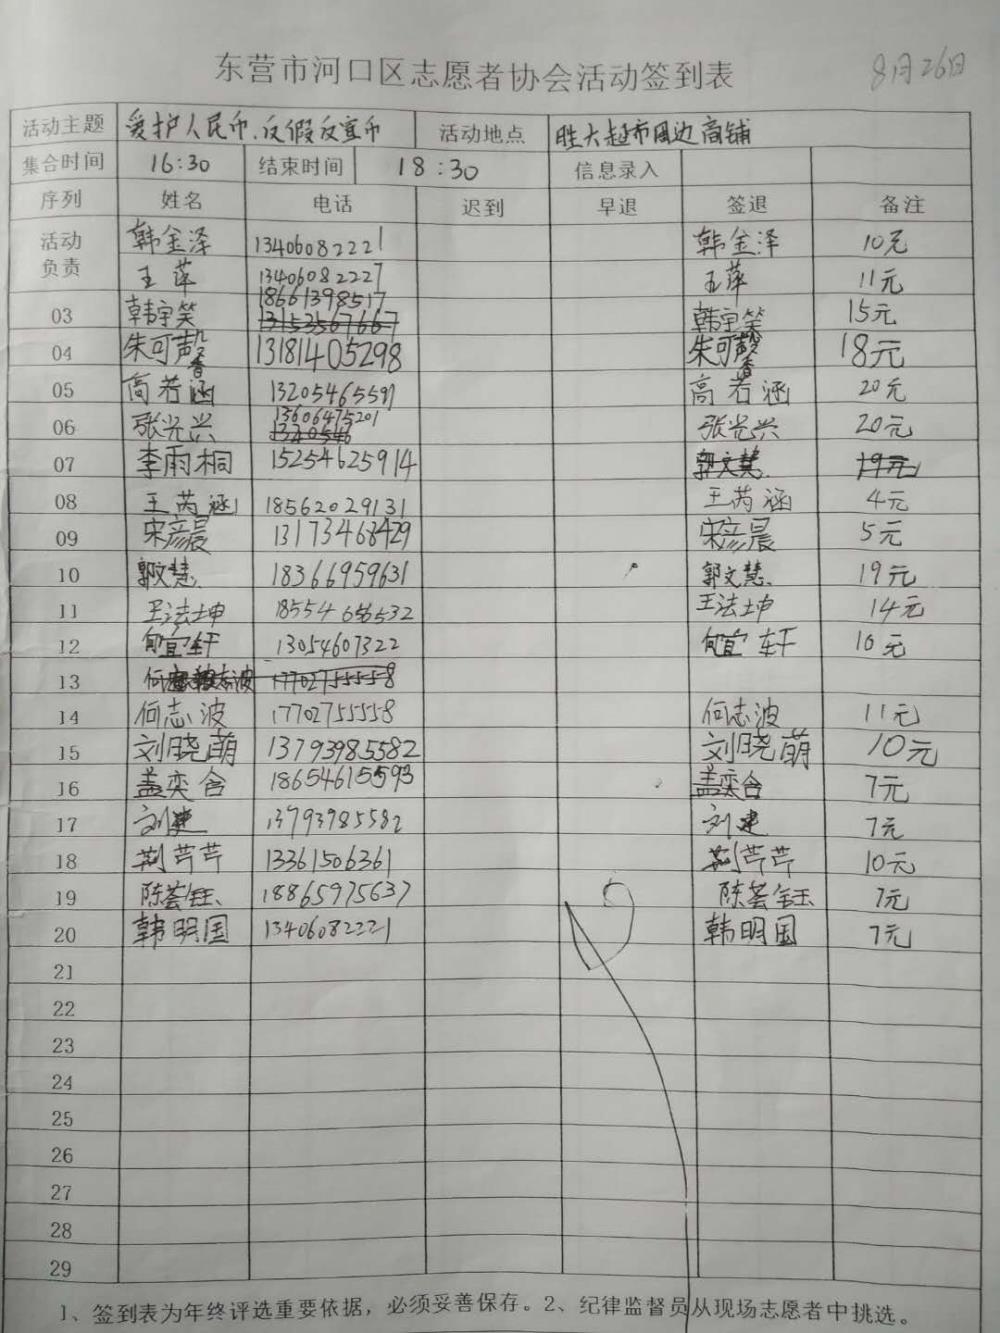 东营市河口区志愿者协会活动签到表 8月26日
活动主题 爱护人民币、反假反宣币 活动地点 胜大超市周边商铺
集合时间 16:30 结束时间 18:30 信息录入
序列 姓名 电话 迟到 早退 签退 备注
活动负责 韩金泽 13406082221 韩金泽 10元
王萍 13406082227 王萍 11元
18661398517
03 韩宇笑 13153567667 韩宇笑 15元
04 朱可馨 13181405298 朱可馨 18元
05 高若涵 13205465591 高若涵 20元
13606475201
06 张光兴 1320546 张光兴 20元
07 李雨桐 15254625914 郭文慧 19元
08 王芮涵 18562029131 王芮涵 4元
09 宋彦晨 13173468429 宋彦晨 5元
10 郭文慧 18366959631 郭文慧 19元
11 王法坤 18554656532 王法坤 14元
12 宜轩 13054607322 宜轩 10元
13 何志波 17702755558
14 何志波 17702755558 何志波 11元
15 刘晓萌 13793985582 刘晓萌 10元
16 盖奕含 18654615593 盖奕含 7元
17 刘建 13793985582 刘建 7元
18 荆芹芹 13361506361 荆芹芹 10元
19 陈荟钰 18865975637 陈荟钰 7元
20 韩明国 13406082221 韩明国 7元
21
22
23
24
25
26
27
28
29
1、签到表为年终评选重要依据，必须妥善保存。2、纪律监督员从现场志愿者中挑选。